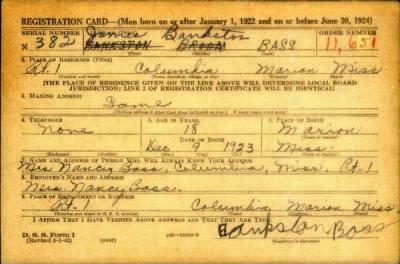 REGISTRATION CARD—(Men born on or after January 1, 1922 and on or before June 30, 1924)
SERIAL NUMBER 1. NAME (Print) ORDER NUMBER
N 382 BANKSTON BROOM BASS 11,651
Bankston
(First) (Middle) (Last)
2. PLACE OF RESIDENCE (Print)
Rt. 1 Columbia Marion Miss
[THE PLACE OF RESIDENCE GIVEN ON THE LINE ABOVE WILL DETERMINE LOCAL BOARD
JURISDICTION; LINE 2 OF REGISTRATION CERTIFICATE WILL BE IDENTICAL]
3. MAILING ADDRESS
Same
[Mailing address if other than place indicated on line 2. If same insert word same]
4. TELEPHONE 5. AGE IN YEARS 6. PLACE OF BIRTH
None 18 Marion
DATE OF BIRTH
Dec 9 1923 Miss.
7. NAME AND ADDRESS OF PERSON WHO WILL ALWAYS KNOW YOUR ADDRESS
Mrs Nancy Bass, Columbia, Miss. Rt. 1
8. EMPLOYER'S NAME AND ADDRESS
Mrs. Nancy Bass.
9. PLACE OF EMPLOYMENT OR BUSINESS
Rt. 1 Columbia Marion Miss.
I AFFIRM THAT I HAVE VERIFIED ABOVE ANSWERS AND THAT THEY ARE TRUE.
Bankston Bass
D. S. S. Form 1
(Revised 6-1-42) (over) (Registrant's signature)